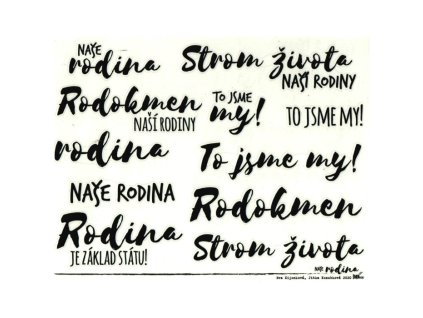 NAŠE
rodina
Strom života
NAŠÍ RODINY
Rodokmen
NAŠÍ RODINY
TO JSME
my!
TO JSME MY!
rodina
To jsme my!
NAŠE RODINA
Rodokmen
Rodina
JE ZÁKLAD STÁTU!
Strom života
NAŠE
rodina
2020